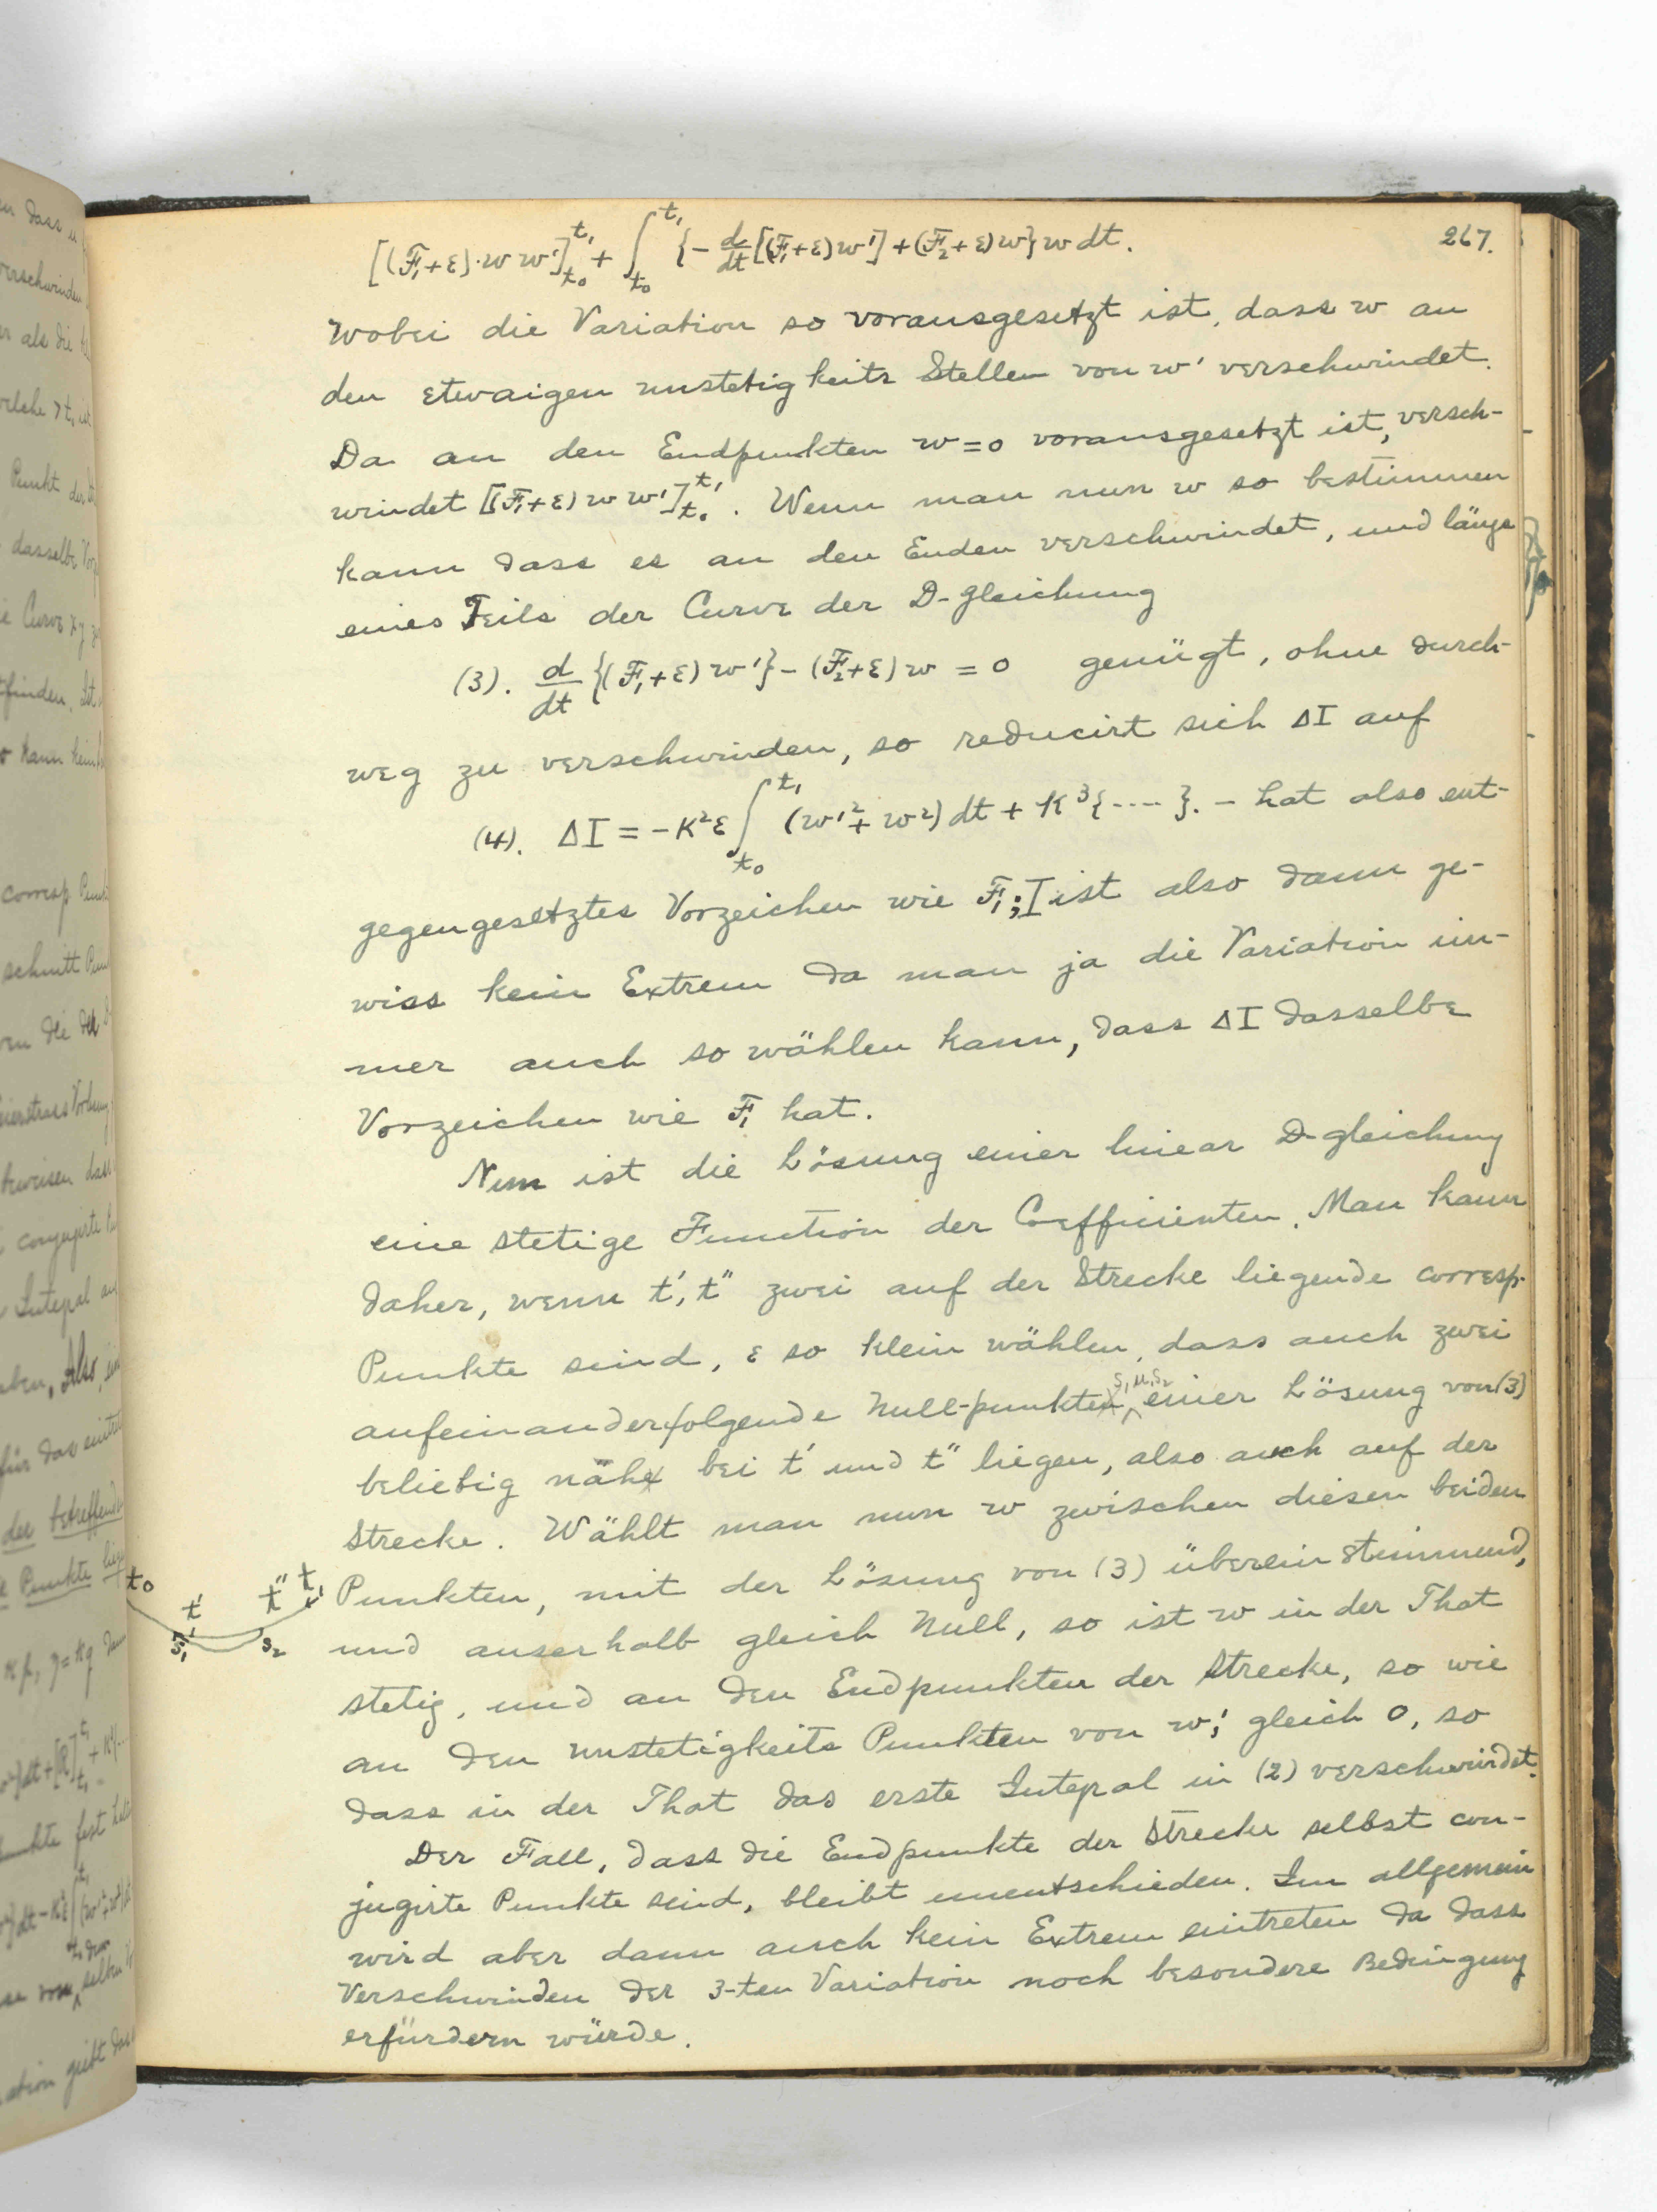 267.
[(F₁+ε)·w w']_{t₀}^{t₁} + ∫_{t₀}^{t₁} {-d/dt[(F₁+ε)w'] + (F₂+ε)w} w dt.
wobei die Variation so vorausgesetzt ist, dass w an
den etwaigen unstetigkeits Stellen von w' verschwindet.
Da an den Endpunkten w=0 vorausgesetzt ist, versch-
windet [(F₁+ε) w w']_{t₀}^{t₁}. Wenn man nun w so bestimmen
kann dass es an den Enden verschwindet, und längs
eines Teils der Curve der D-gleichung
(3). d/dt {(F₁+ε) w'} - (F₂+ε) w = 0 genügt, ohne durch-
weg zu verschwinden, so reducirt sich ΔI auf
(4). ΔI = -K²ε ∫_{t₀}^{t₁} (w'²+w²) dt + K³{----}. - hat also ent-
gegengesetztes Vorzeichen wie F₁; I ist also dann ge-
wiss kein Extrem da man ja die Variation im-
mer auch so wählen kann, dass ΔI dasselbe
Vorzeichen wie F₁ hat.
Nun ist die Lösung einer linear D-gleichung
eine stetige Function der Coefficienten. Man kann
daher, wenn t', t" zwei auf der Strecke liegende corresp.
Punkte sind, ε so klein wählen, dass auch zwei
aufeinanderfolgende Null-punkte s₁ u. s₂ einer Lösung von (3)
beliebig nähe bei t' und t" liegen, also auch auf der
Strecke. Wählt man nun w zwischen diesen beiden
Punkten, mit der Lösung von (3) überein stimmend,
und auserhalb gleich Null, so ist w in der That
stetig, und an den Endpunkten der Strecke, so wie
an den unstetigkeits Punkten von w', gleich 0, so
dass in der That das erste Integral in (2) verschwindet.
Der Fall, dass die Endpunkte der Strecke selbst con-
jugirte Punkte sind, bleibt unentschieden. Im allgemein
wird aber dann auch kein Extrem eintreten da dass
Verschwinden der 3-ten Variation noch besondere Bedingung
erfürdern würde.
t₀ t' t" t₁
s₁ s₂